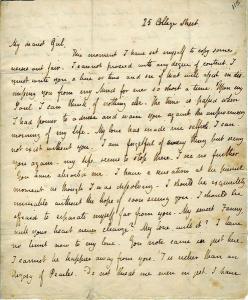 25 College Street.
My dearest Girl,
This moment I have set myself to copy some
verses out fair. I cannot proceed with any degree of content. I
must write you a line or two and see if that will assist in dis-
missing you from my Mind for ever so short a time. Upon my
Soul I can think of nothing else. The time is passed when
I had power to advise and warn you against the unpromising
morning of my Life. My love has made me selfish. I can
not exist without you. I am forgetful of every thing but seeing
you again. my Life seems to stop there. I see no further.
You have absorb'd me. I have a sensation at the present
moment as though I was dissolving. I should be exquisitely
miserable without the hope of soon seeing you. I should be
afraid to separate myself far from you. My sweet Fanny
will your heart never change? My love will it? I have
no limit now to my love. You note came in just here.
I cannot be happier away from you. 'Tis richer than an
Argosy of Pearles. Do not threat me even in jest. I have